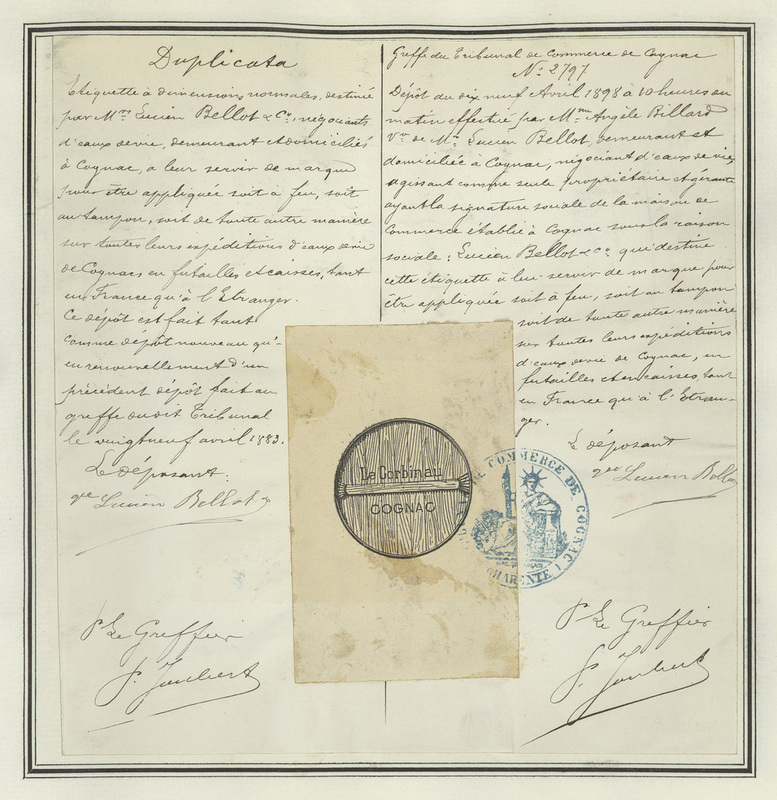 Duplicata
Etiquette à dimensions normales, destinée
par Mrs Lucien Bellot & Cie, négociants
d'eaux de vie, demeurant et domiciliés
à Cognac, a leur servir de marque
pour être appliquée soit à feu, soit
au tampon, soit de toute autre manière
sur toutes leurs expéditions d'eaux de vie
de Cognacs en futailles et caisses, tant
en France qu'à l'Etranger.
Ce dépôt est fait tant
comme dépôt nouveau qu'-
en renouvellement d'un
précédent dépôt fait au
greffe du dit Tribunal
le vingt neuf avril 1883.
Le déposant.
Lucien Bellot
P Le Greffier
P. Joubert
Greffe du Tribunal de Commerce de Cognac
No 2797
Dépôt du dix neuf Avril 1898 à 10 heures du
matin effectué par Mme Angèle Billard
Vve de Mr Lucien Bellot, demeurant et
domiciliée à Cognac, négociant d'eaux de vie,
agissant comme seule propriétaire et gérante
ayant la signature sociale de la maison de
Commerce établie à Cognac sous la raison
sociale; Lucien Bellot & Co qui destine
cette étiquette à leur servir de marque pour
être appliquée soit à feu, soit au tampon
soit de toute autre manière
sur toutes leurs expéditions
d'eaux de vie de Cognac, en
futailles et en caisses, tant
en France qu'à l'Etran-
ger.
Le déposant
Lucien Bellot
P Le Greffier
P. Joubert
Le Corbinau
COGNAC
DE COMMERCE DE COGNAC
CHARENTE